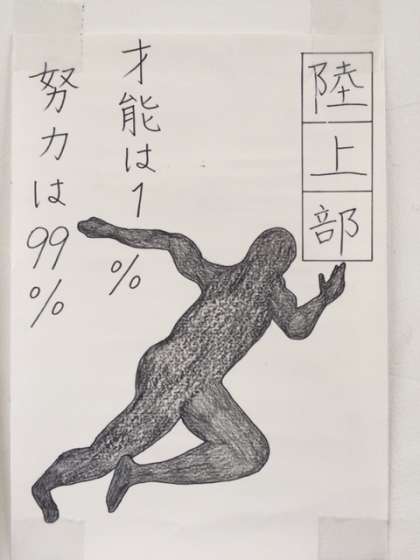 陸上部
才能は1%
努力は99%